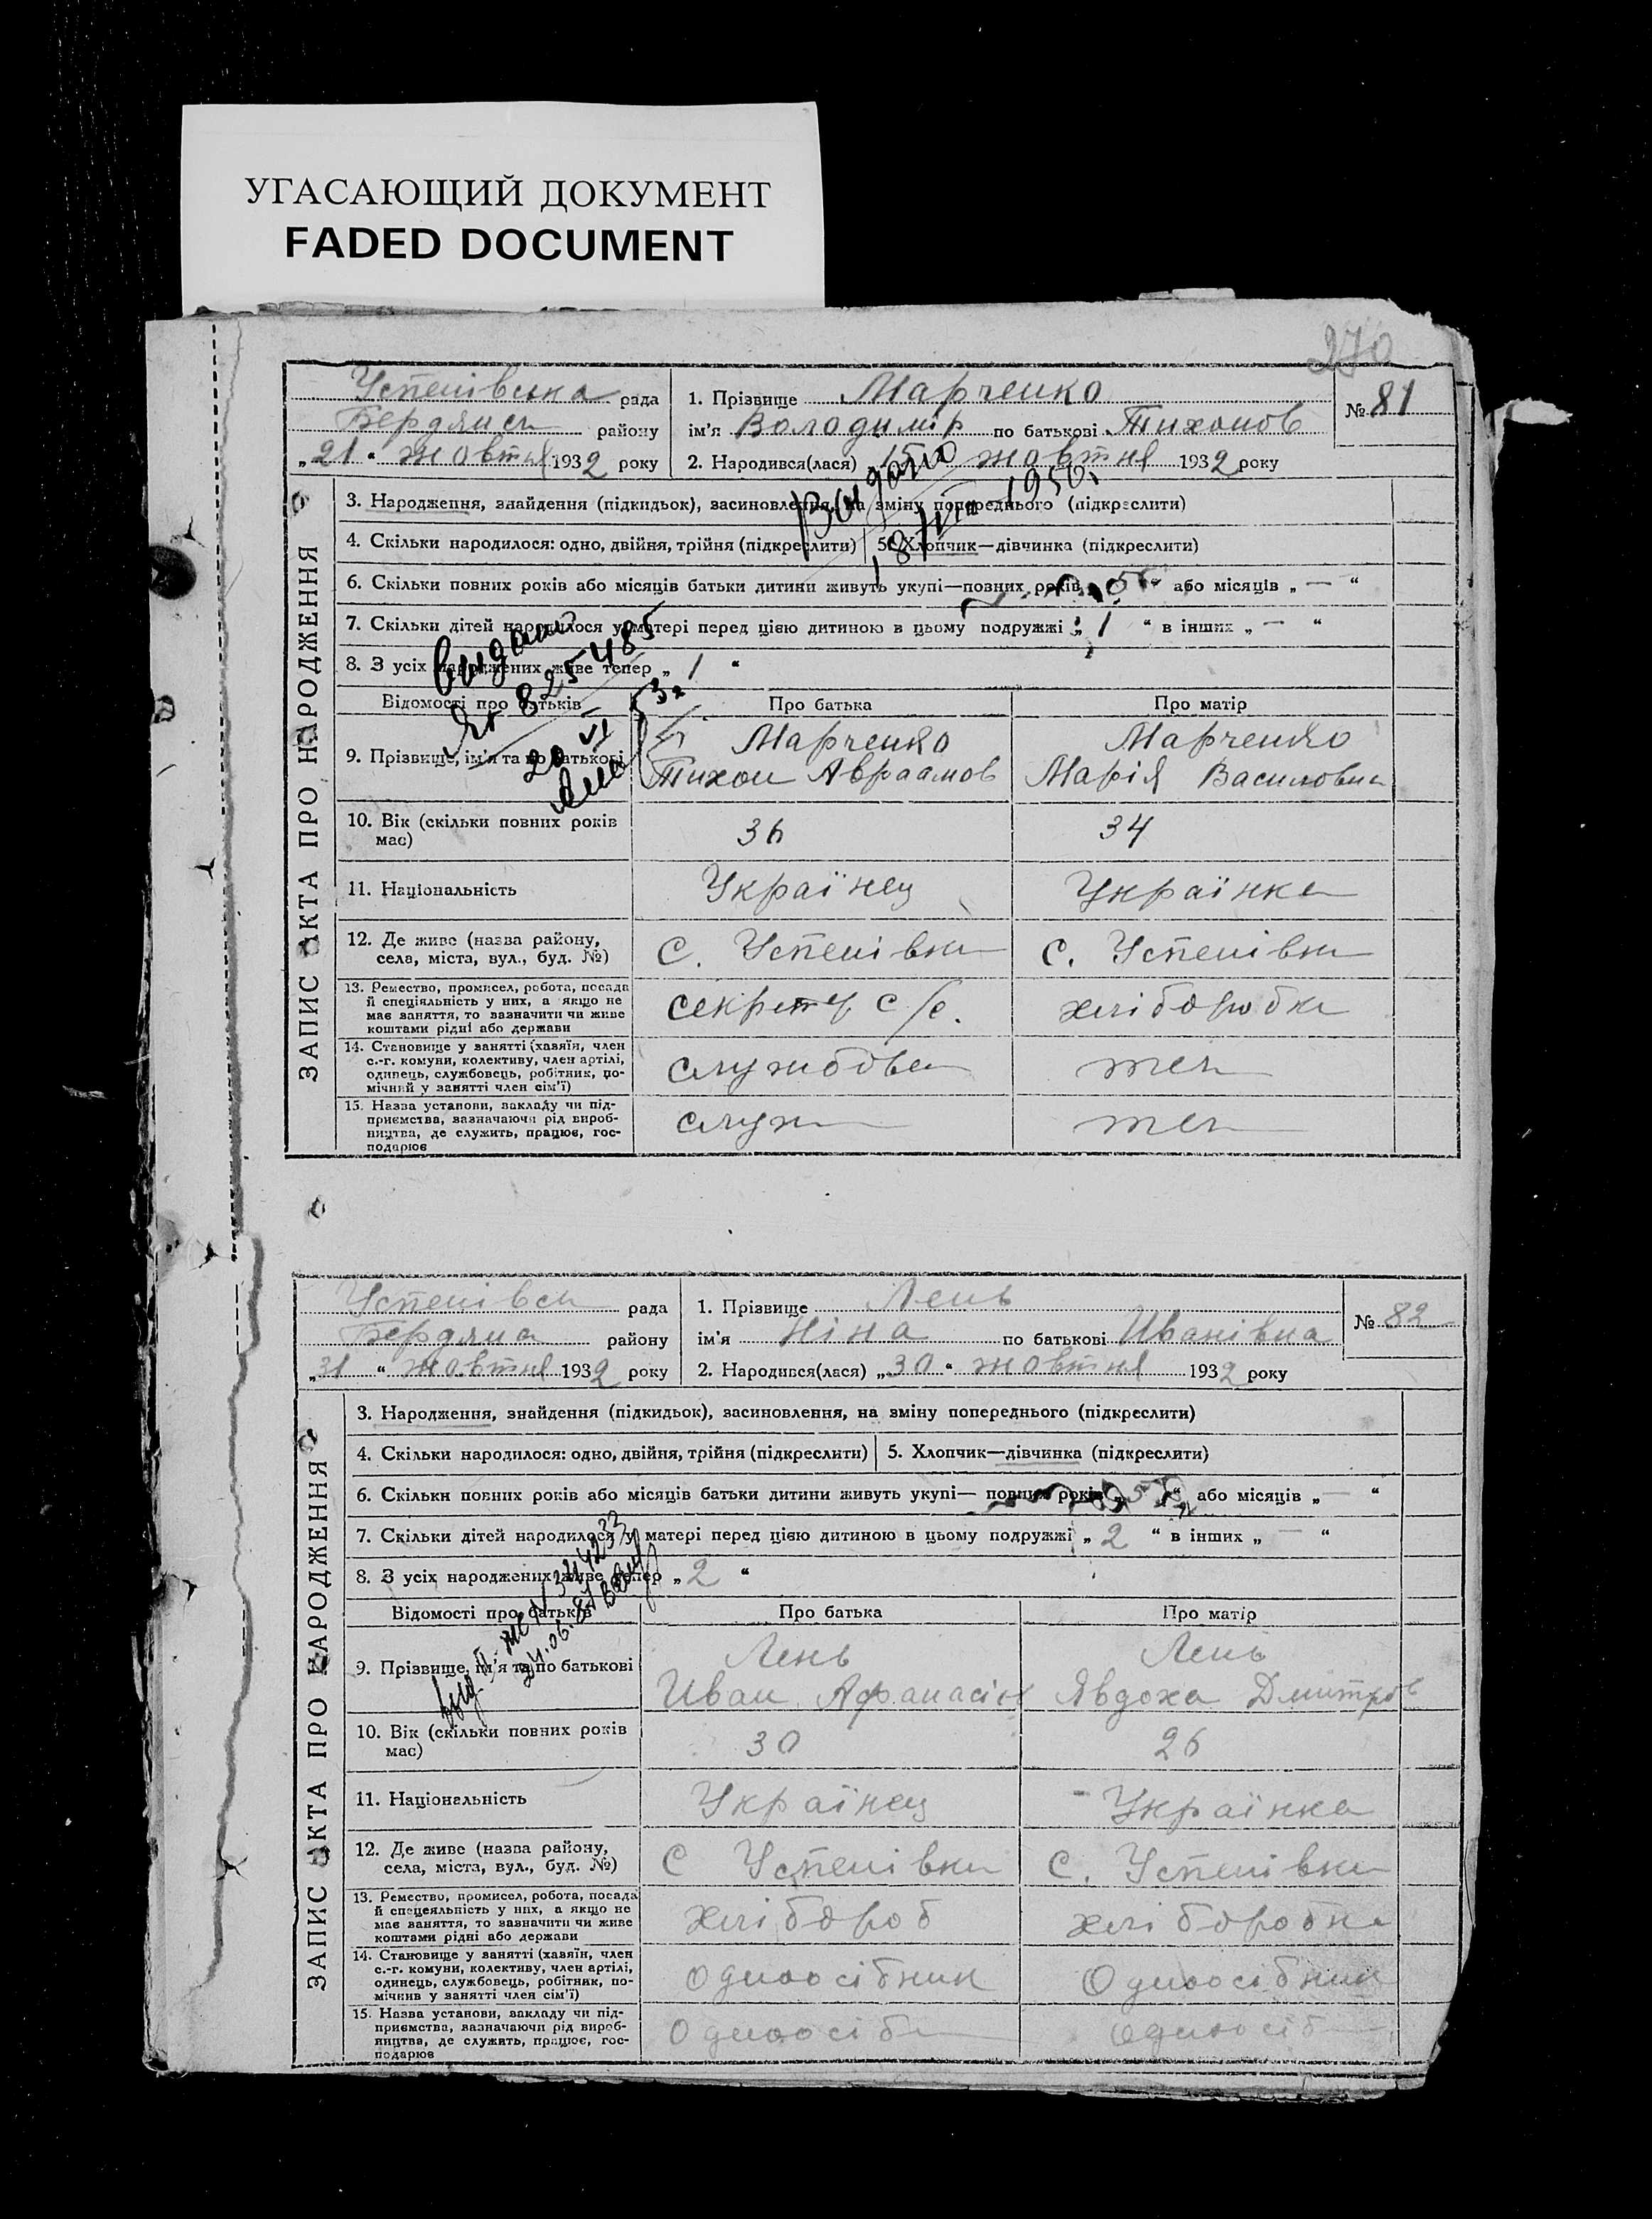 УГАСАЮЩИЙ ДОКУМЕНТ
FADED DOCUMENT
270
Успенівська рада
Бердянск району
„21“ жовтня 1932 року
1. Прізвище Марченко
ім'я Володимір по батькові Тихонов
2. Народився(лася) „15“ жовтня 1932 року
№ 81
ЗАПИС АКТА ПРО НАРОДЖЕННЯ
3. Народження, знайдення (підкидьок), засиновлення, на зміну попереднього (підкреслити)
4. Скільки народилося: одно, двійня, трійня (підкреслити) 5. Хлопчик—дівчинка (підкреслити)
6. Скільки повних років або місяців батьки дитини живуть укупі—повних років „ 5 “ або місяців „ — “
7. Скільки дітей народилося у матері перед цією дитиною в цьому подружжі „ 1 “ в інших „ — “
8. З усіх народжених живе тепер „ 1 “
Видано
18/VIII 1950
видано
825485
20 VI 53
Відомості про батьків Про батька Про матір
9. Прізвище, ім'я та по батькові
Марченко
Тихон Авраамов
Марченко
Марія Василовна
10. Вік (скільки повних років
має)
36 34
11. Національність Українец Українка
12. Де живе (назва району,
села, міста, вул., буд. №)
С. Успенівки С. Успенівки
13. Ремество, промисел, робота, посада
й спеціяльність у них, а якщо не
має заняття, то зазначити чи живе
коштами рідні або держави
секретар с/с. хліборобка
14. Становище у занятті (хазяїн, член
с.-г. комуни, колективу, член артілі,
одинець, службовець, робітник, по-
мічний у занятті член сім'ї)
службове
15. Назва установи, закладу чи під-
приємства, зазначаючи рід вироб-
ництва, де служить, працює, гос-
подарює
служ
Успенівск рада
Бердяна району
„31“ жовтня 1932 року
1. Прізвище Лень
ім'я Ніна по батькові Иванівна
2. Народився(лася) „30“ жовтня 1932 року
№ 82
ЗАПИС АКТА ПРО НАРОДЖЕННЯ
3. Народження, знайдення (підкидьок), засиновлення, на зміну попереднього (підкреслити)
4. Скільки народилося: одно, двійня, трійня (підкреслити) 5. Хлопчик—дівчинка (підкреслити)
6. Скільки повних років або місяців батьки дитини живуть укупі— повних років або місяців „ — “
7. Скільки дітей народилося у матері перед цією дитиною в цьому подружжі „ 2 “ в інших „ — “
8. З усіх народжених живе тепер „ 2 “
24.06.87
Відомості про батьків Про батька Про матір
9. Прізвище, ім'я та по батькові
Лень
Иван Афанасій
Лень
Явдоха Дмитров
10. Вік (скільки повних років
має)
30 26
11. Національність Українец Українка
12. Де живе (назва району,
села, міста, вул., буд. №)
С Успенівки С. Успенівки
13. Ремество, промисел, робота, посада
й спецеяльність у них, а якщо не
має заняття, то зазначити чи живе
коштами рідні або держави
хлібороб хліборобка
14. Становище у занятті (хазяїн, член
с.-г. комуни, колективу, член артілі,
одинець, службовець, робітник, по-
мічнив у занятті член сім'ї)
Одноосібник Одноосібник
15. Назва установи, закладу чи під-
приємства, зазначаючи рід вироб-
ництва, де служить, працює, гос-
подарює
Одноосіб одноосіб